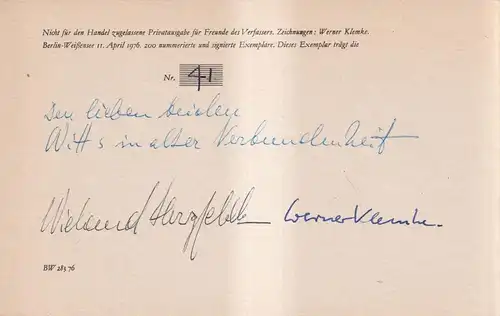 Nicht für den Handel zugelassene Privatausgabe für Freunde des Verfassers. Zeichnungen: Werner Klemke.
Berlin-Weißensee 11. April 1976. 200 nummerierte und signierte Exemplare. Dieses Exemplar trägt die
Nr. 41
Den lieben beiden
Witt s in alter Verbundenheit
Wieland Herzfelde Werner Klemke.
BW 285 76